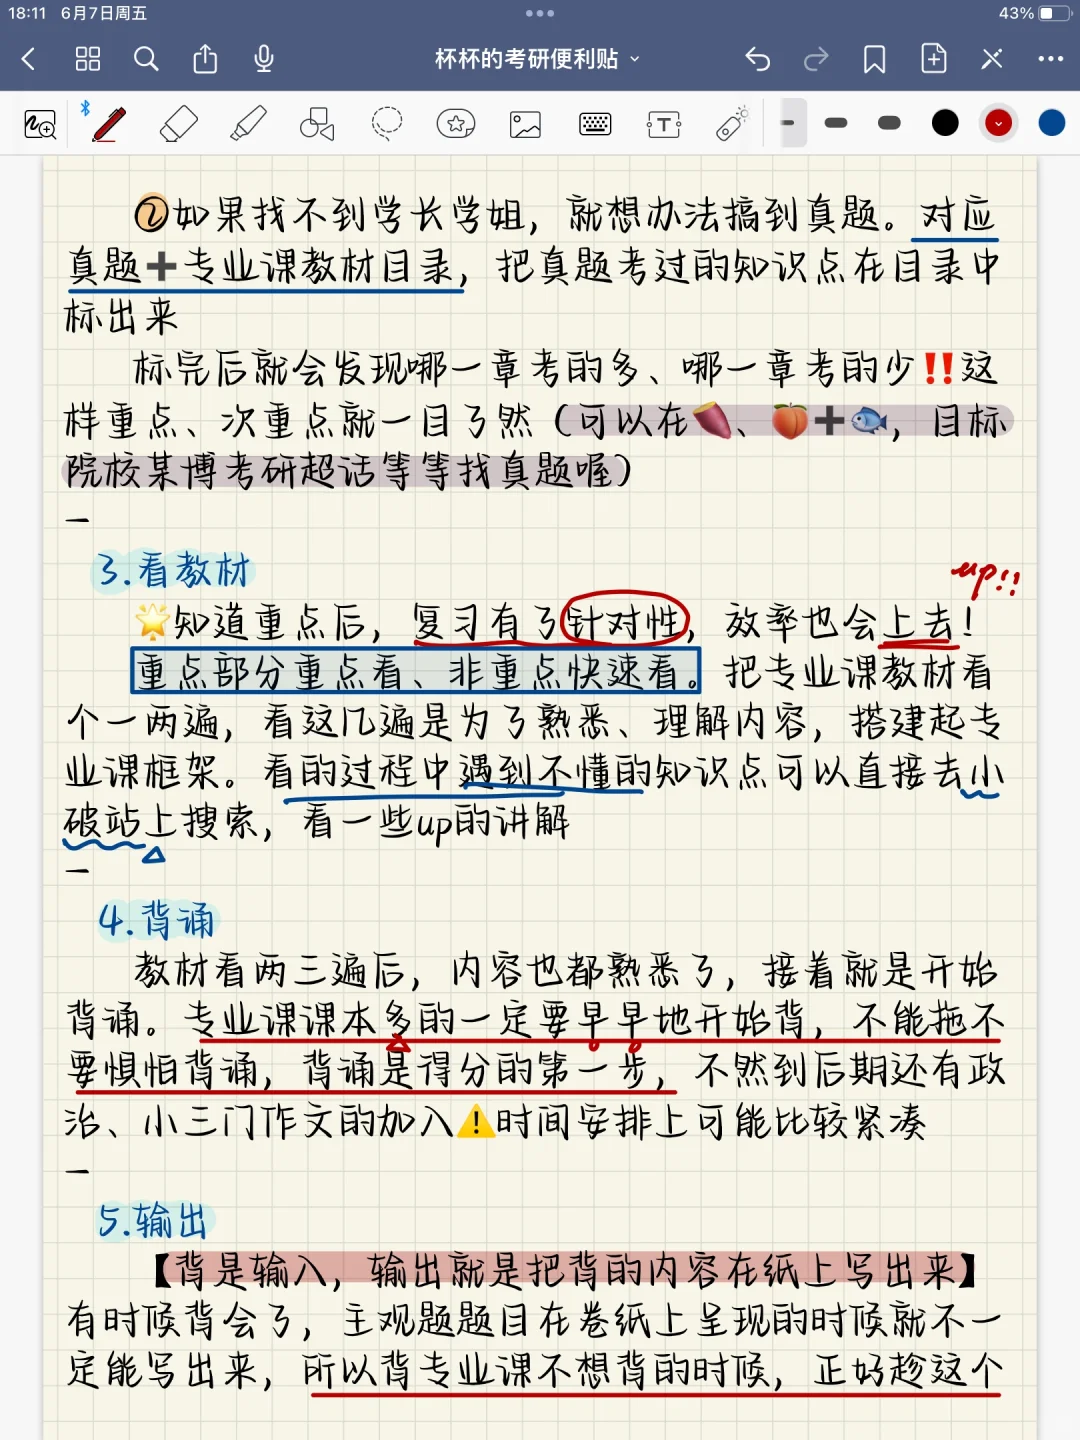 18:11 6月7日周五 43%
杯杯的考研便利贴
②如果找不到学长学姐，就想办法搞到真题。对应
真题➕专业课教材目录，把真题考过的知识点在目录中
标出来
标完后就会发现哪一章考的多、哪一章考的少‼️这
样重点、次重点就一目了然（可以在🍠、🍑➕🐟，目标
院校某博考研超话等等找真题喔）
—
3.看教材
up!!
🌟知道重点后，复习有了针对性，放率也会上去！
重点部分重点看、非重点快速看。把专业课教材看
个一两遍，看这几遍是为了熟悉、理解内容，搭建起专
业课框架。看的过程中遇到不懂的知识点可以直接去小
破站上搜索，看一些up的讲解
—
4.背诵
教材看两三遍后，内容也都熟悉了，接着就是开始
背诵。专业课课本多的一定要早早地开始背，不能拖不
要惧怕背诵，背诵是得分的第一步，不然到后期还有政
治、小三门作文的加入⚠️时间安排上可能比较紧凑
—
5.输出
【背是输入，输出就是把背的内容在纸上写出来】
有时候背会了，主观题题目在卷纸上呈现的时候就不一
定能写出来，所以背专业课不想背的时候，正好趁这个